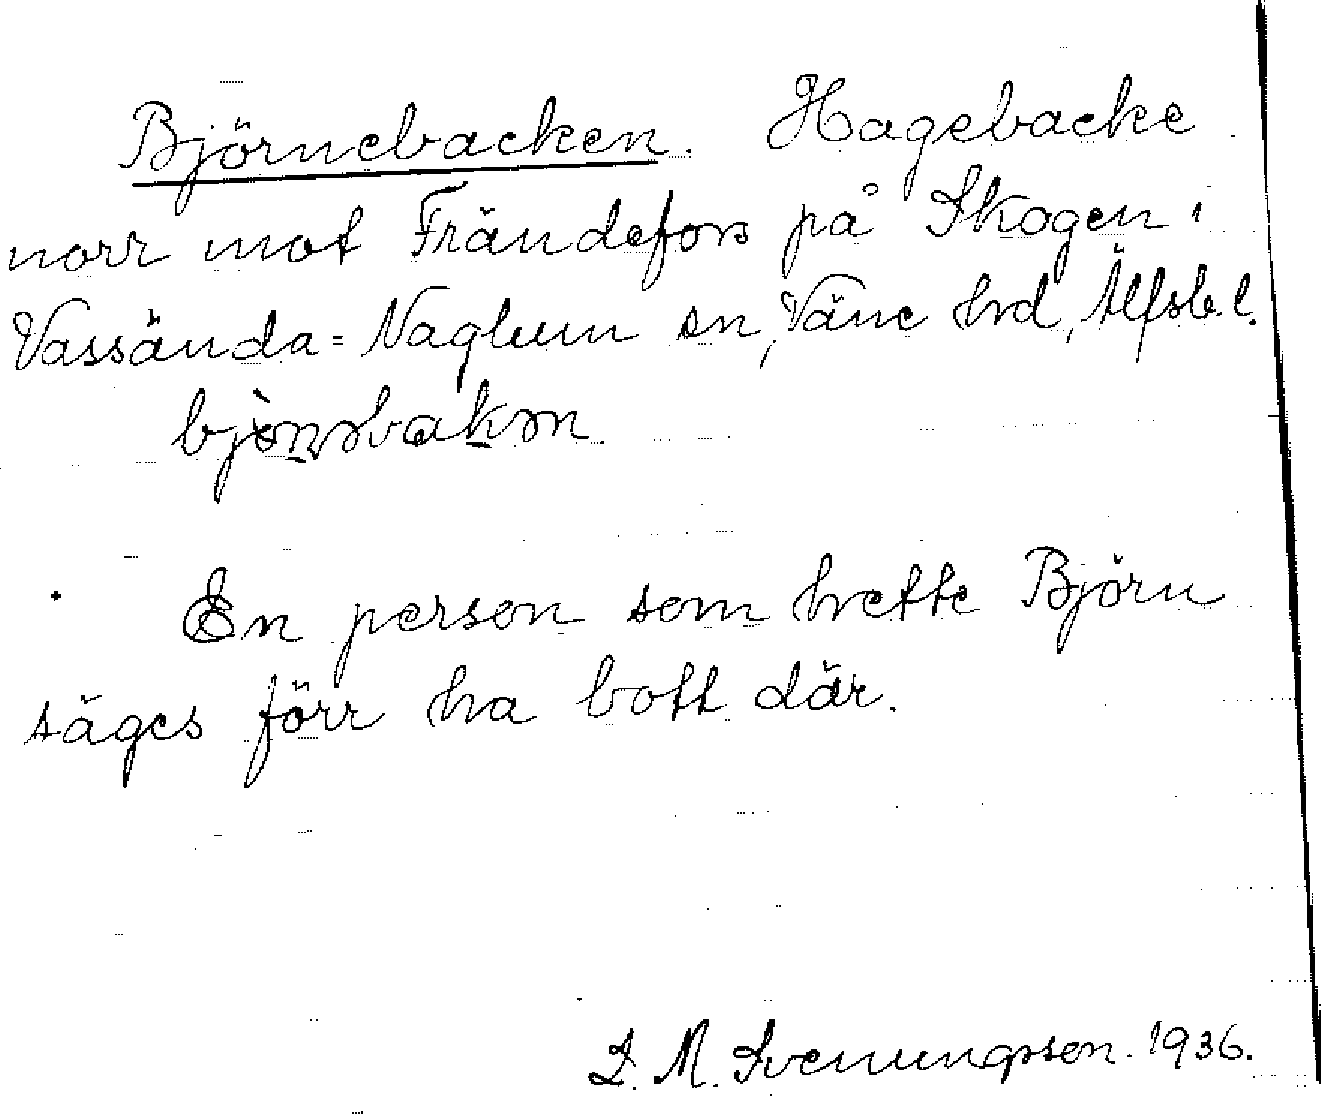 Björnebacken. Hagebacke
norr mot Frändefors på Skogen i
Vassända-Naglum sn, Väne hrd, Älfsb. l.
En person som hette Björn
säges förr ha bott där.
D. M. Svenungsson. 1936.